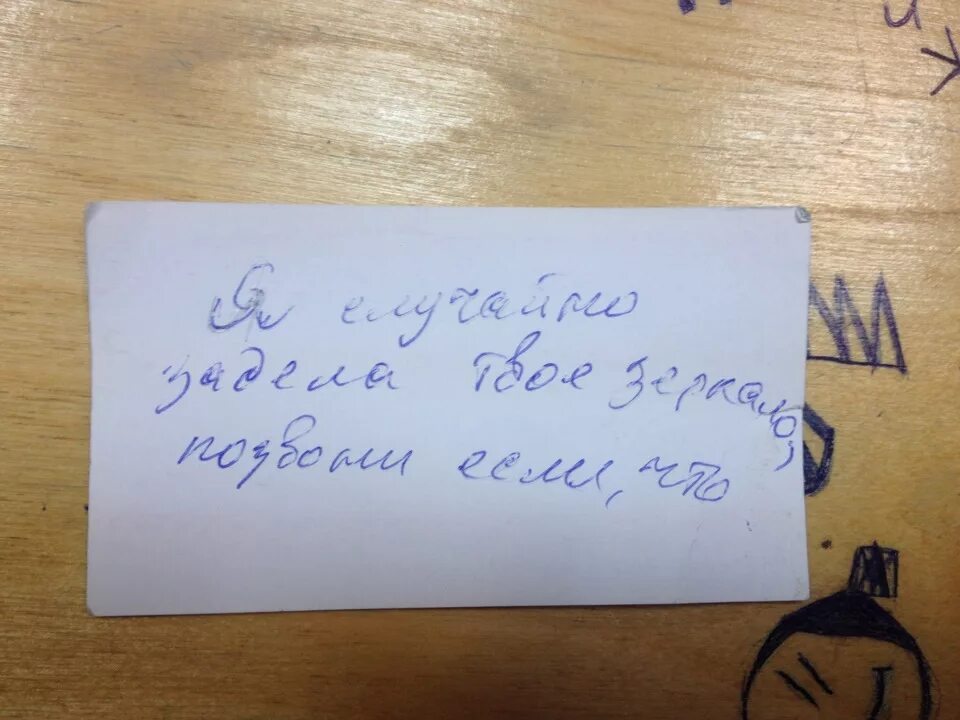 Я случайно
задела твое зеркало,
позвони если, что